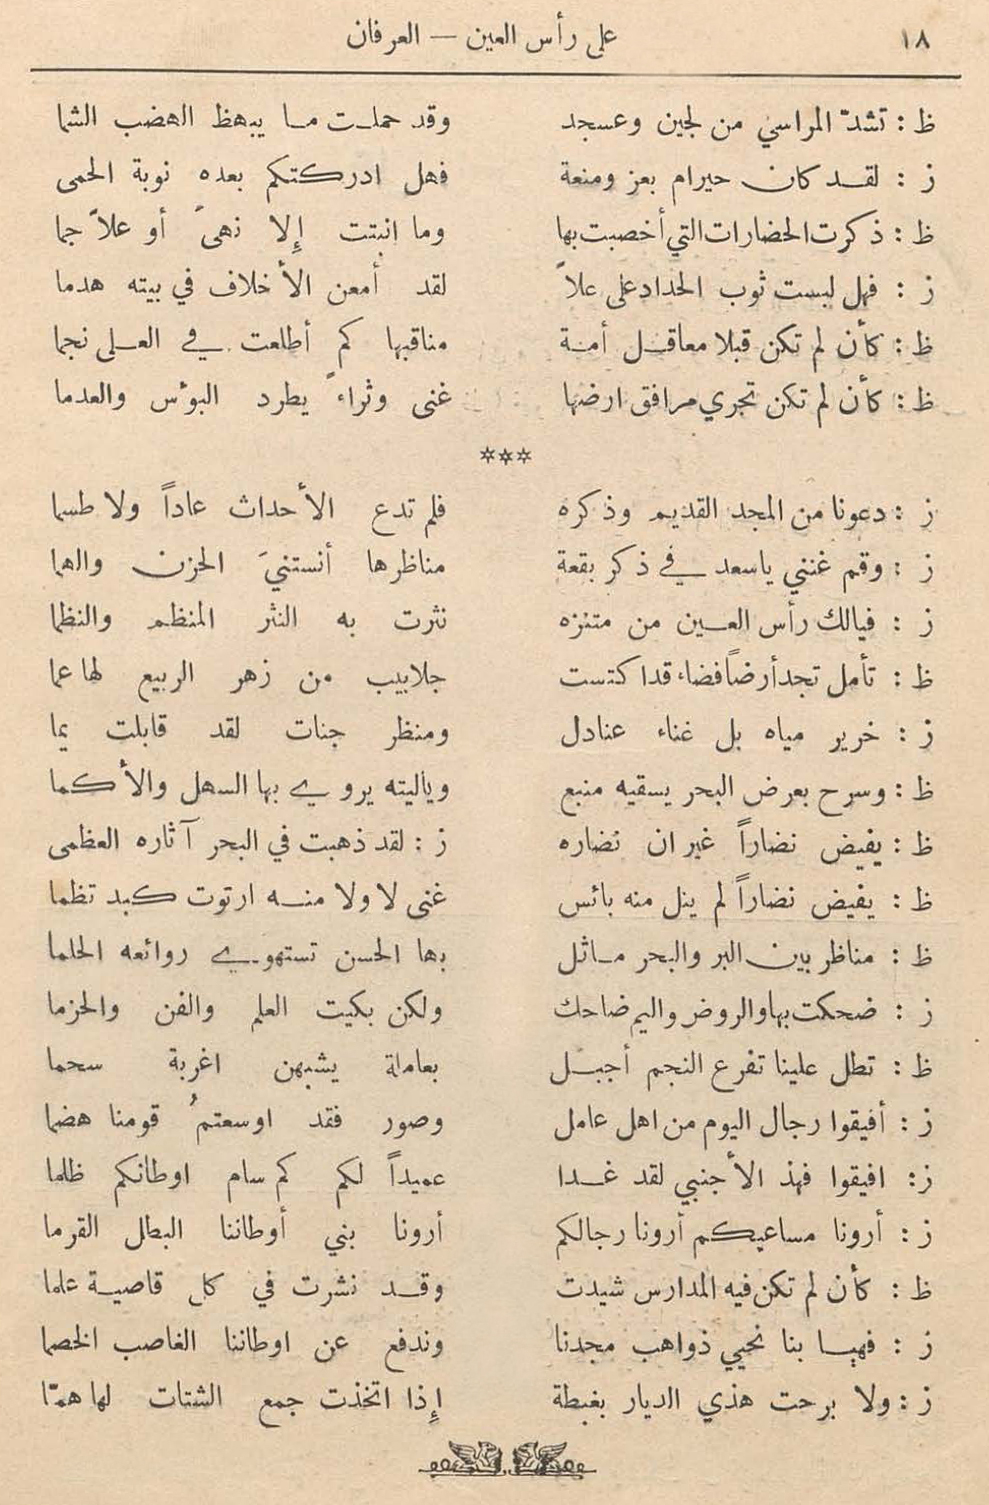 ١٨ على رأس العين — العرفان
ظ : تشدّ المراسي من لجين وعسجد وقد حملت ما يبهظ الهضب الشما
ز : لقد كان حيرام بعز ومنعة فهل ادركتكم بعده نوبة الحمى
ظ : ذكرت الحضارات التي أخصبت بها وما انبتت إلا نهىً أو علاً جما
ز : فهل لبست ثوب الحداد على علاً لقد أمعن الأخلاف في بيته هدما
ظ : كأن لم تكن قبلا معاقل أمة مناقبها كم أطلعت في العلى نجما
ظ : كأن لم تكن تجري مرافق ارضها غنى وثراءً يطرد البؤس والعدما
***
ز : دعونا من المجد القديم وذكره فلم تدع الأحداث عاداً ولا طسما
ز : وقم غنني يا سعد في ذكر بقعة مناظرها أنستنيَ الحزن والهما
ز : فيالك رأس العين من متنزه نثرت به النثر المنظم والنظما
ظ : تأمل تجد أرضاً فضاء قد اكتست جلابيب من زهر الربيع لها عما
ز : خرير مياه بل غناء عنادل ومنظر جنات لقد قابلت يما
ظ : وسرح بعرض البحر يسقيه منبع وياليته يروي بها السهل والأكما
ظ : يفيض نضاراً غير ان نضاره ز : لقد ذهبت في البحر آثاره العظمى
ظ : يفيض نضاراً لم ينل منه بائس غنى لا ولا منه ارتوت كبد تظما
ظ : مناظر بين البر والبحر ماثل بها الحسن تستهوي روائعه الحلما
ز : ضحكت بها والروض واليم ضاحك ولكن بكيت العلم والفن والحزما
ظ : تطل علينا تفرع النجم أجبل بعاملة يشبهن اغربة سحما
ز : أفيقوا رجال اليوم من اهل عامل وصور فقد اوسعتمُ قومنا هضما
ز : افيقوا فهذ الأجنبي لقد غدا عميداً لكم كم سام اوطانكم ظلما
ز : أرونا مساعيكم أرونا رجالكم أرونا بني أوطاننا البطل القرما
ظ : كأن لم تكن فيه المدارس شيدت وقد نشرت في كل قاصية علما
ز : فهيا بنا نحيي ذواهب مجدنا وندفع عن اوطاننا الغاصب الخصما
ز : ولا برحت هذي الديار بغبطة إذا اتخذت جمع الشتات لها همّا